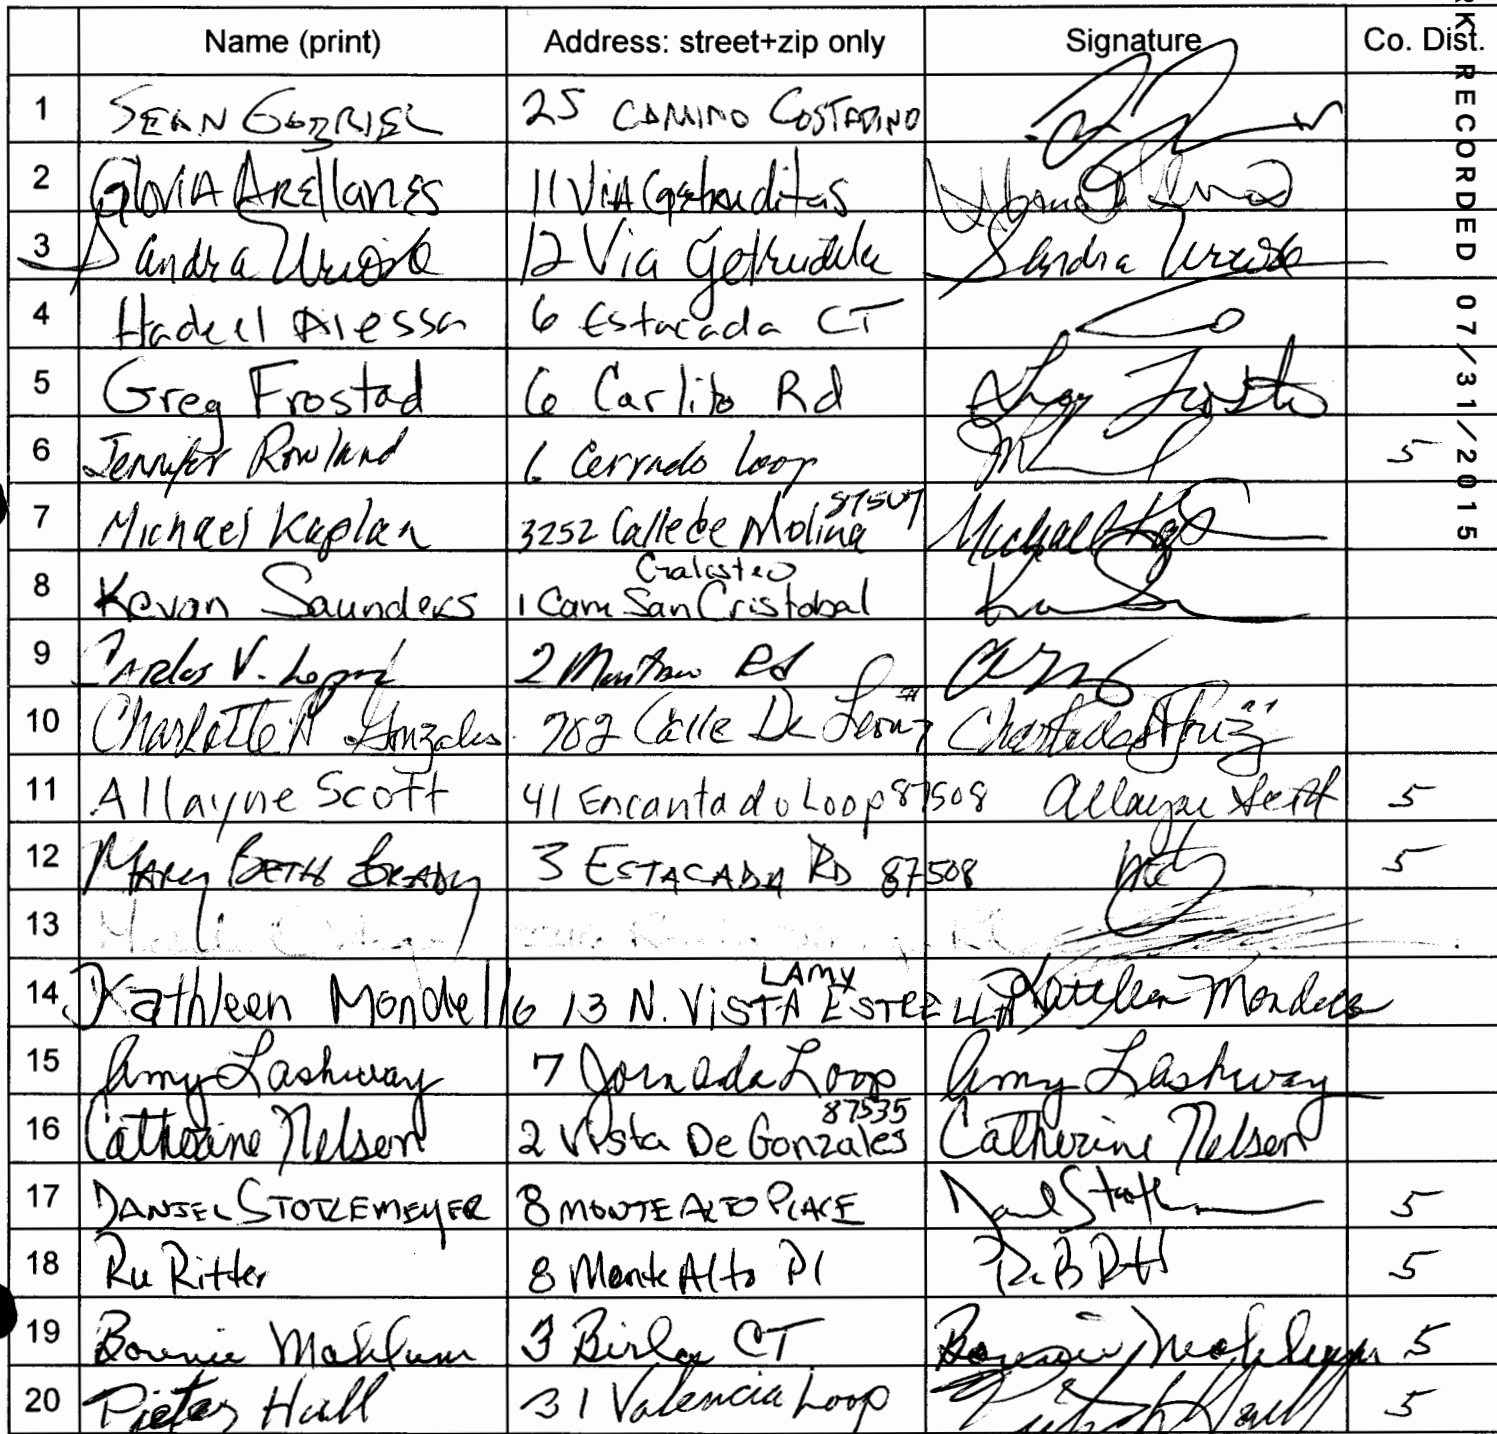 Name (print) Address: street+zip only Signature Co. Dist.
1 SEAN GABRIEL 25 CAMINO COSTADINO
2 GloVIA AREllanES 11 ViA Getruditas
3 Sandra Urioste 12 Via Getrudita Sandra Urioste
4 Hadeel Alessa 6 Estacada CT
5 Greg Frostad 6 Carlito Rd
6 Jennifer Rowland 6 Cerrado Loop 5
7 Michael Kaplan 3252 Calle de Molina 87507 Michael
Galisteo
8 Kevan Saunders 1 Cam San Cristobal
9 Carlos V. 2 Rd
10 Charlotte A Gonzales 702 Calle De Leon
11 Allayne Scott 41 Encantado Loop 87508 Allayne Scott 5
12 MARY BETH BRADY 3 ESTACADA RD 87508 5
13
LAMY
14 Kathleen Mondello 13 N. ViSTA ESTRELLA Kathleen Mondello
15 Amy Lashway 7 Jornada Loop Amy Lashway
87535
16 Catherine Nelson 2 Vista De Gonzales Catherine Nelson
17 DANIEL STOTLEMEYER 8 MONTE ALTO PLACE 5
18 Ru Ritter 8 Monte Alto Pl 5
19 Bonnie Mahlum 3 CT Bonnie Mahlum 5
20 Pieter Hull 31 Valencia Loop 5
RK RECORDED 07/31/2015